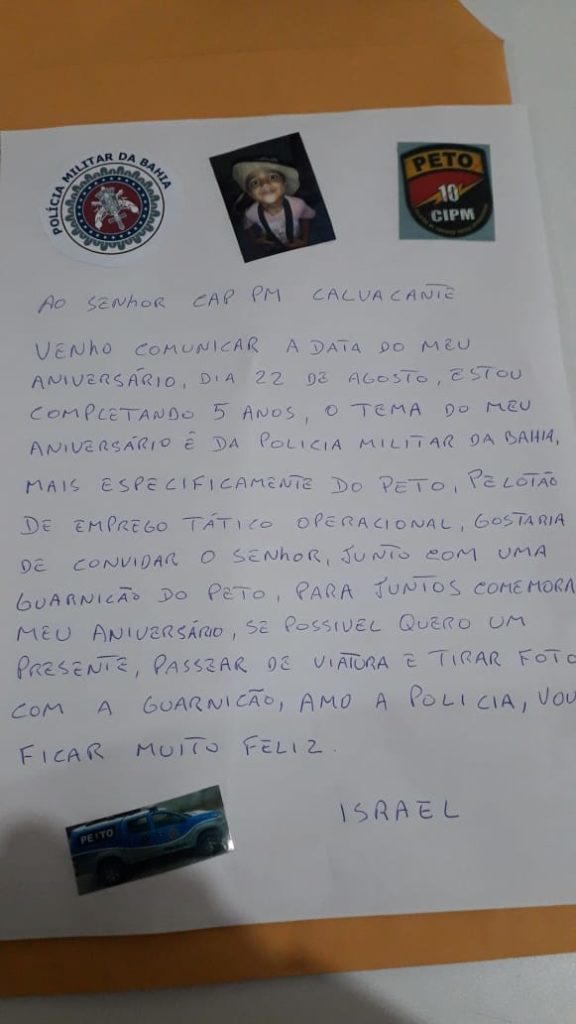 POLÍCIA MILITAR DA BAHIA
PETO
10
CIPM
AO SENHOR CAP PM CALVACANTE
VENHO COMUNICAR A DATA DO MEU
ANIVERSÁRIO, DIA 22 DE AGOSTO, ESTOU
COMPLETANDO 5 ANOS, O TEMA DO MEU
ANIVERSÁRIO É DA POLICIA MILITAR DA BAHIA,
MAIS ESPECIFICAMENTE DO PETO, PELOTÃO
DE EMPREGO TÁTICO OPERACIONAL, GOSTARIA
DE CONVIDAR O SENHOR, JUNTO COM UMA
GUARNICÃO DO PETO, PARA JUNTOS COMEMORA
MEU ANIVERSÁRIO, SE POSSIVEL QUERO UM
PRESENTE, PASSEAR DE VIATURA E TIRAR FOTO
COM A GUARNICÃO, AMO A POLICIA, VOU
FICAR MUITO FELIZ.
ISRAEL
PETO